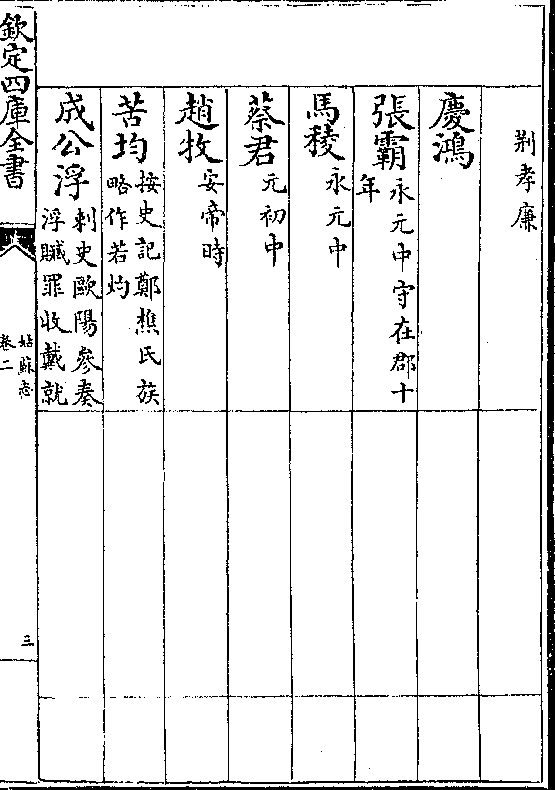 荆孝廉
慶鴻
張霸 永元中守在郡十
年
馬稜 永元中
蔡君 元初中
趙牧 安帝時
苦均 按史記鄭樵氏族
略作若灼
成公浮 刺史歐陽參奏
浮贓罪收戴就
欽定四庫全書
姑蘇志
卷二
三